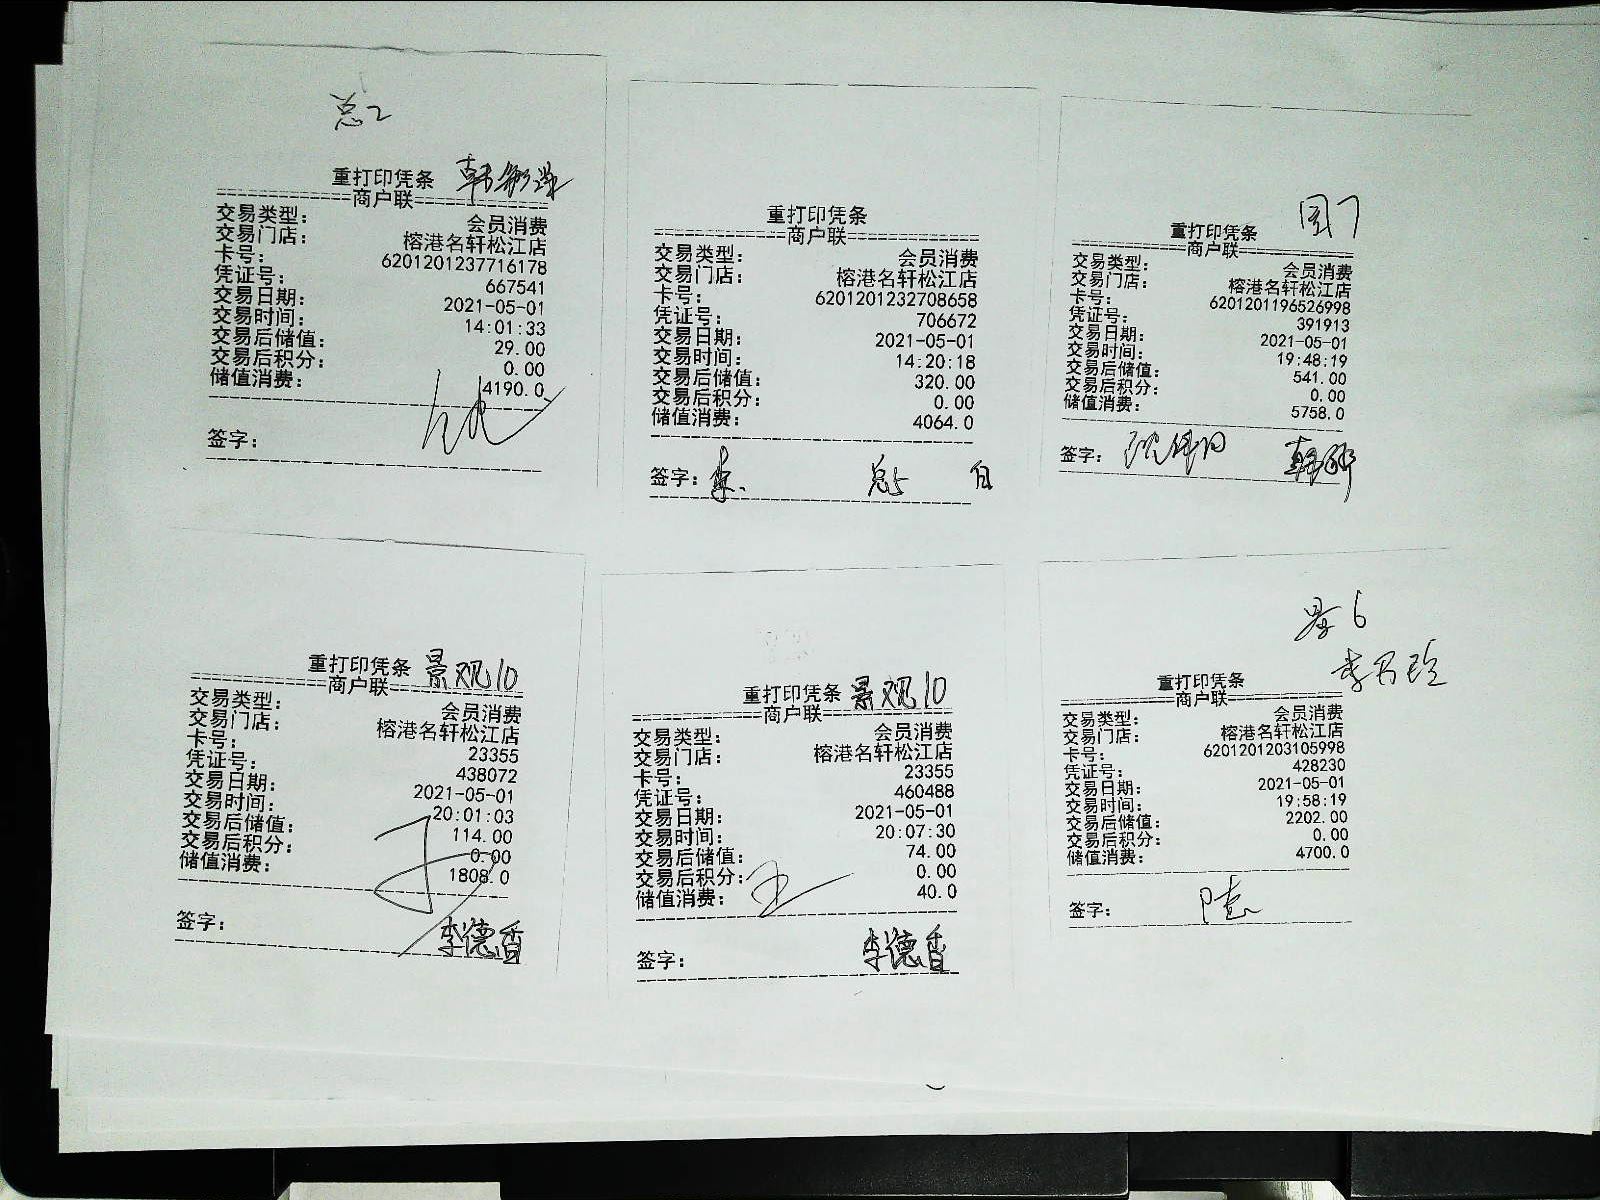 总2
重打印凭条
商户联
交易类型： 会员消费
交易门店： 榕港名轩松江店
卡号： 6201201237716178
凭证号： 667541
交易日期： 2021-05-01
交易时间： 14:01:33
交易后储值： 29.00
交易后积分： 0.00
储值消费： 4190.0
签字：
重打印凭条
商户联
交易类型： 会员消费
交易门店： 榕港名轩松江店
卡号： 6201201232708658
凭证号： 706672
交易日期： 2021-05-01
交易时间： 14:20:18
交易后储值： 320.00
交易后积分： 0.00
储值消费： 4064.0
签字： 李 总5
重打印凭条
商户联
交易类型： 会员消费
交易门店： 榕港名轩松江店
卡号： 6201201196526998
凭证号： 391913
交易日期： 2021-05-01
交易时间： 19:48:19
交易后储值： 541.00
交易后积分： 0.00
储值消费： 5758.0
签字：
重打印凭条 景观10
商户联
交易类型： 会员消费
交易门店： 榕港名轩松江店
卡号： 23355
凭证号： 438072
交易日期： 2021-05-01
交易时间： 20:01:03
交易后储值： 114.00
交易后积分： 0.00
储值消费： 1808.0
签字： 李德香
重打印凭条 景观10
商户联
交易类型： 会员消费
交易门店： 榕港名轩松江店
卡号： 23355
凭证号： 460488
交易日期： 2021-05-01
交易时间： 20:07:30
交易后储值： 74.00
交易后积分： 0.00
储值消费： 40.0
签字： 李德香
景6
重打印凭条
商户联
交易类型： 会员消费
交易门店： 榕港名轩松江店
卡号： 6201201203105998
凭证号： 428230
交易日期： 2021-05-01
交易时间： 19:58:19
交易后储值： 2202.00
交易后积分： 0.00
储值消费： 4700.0
签字：